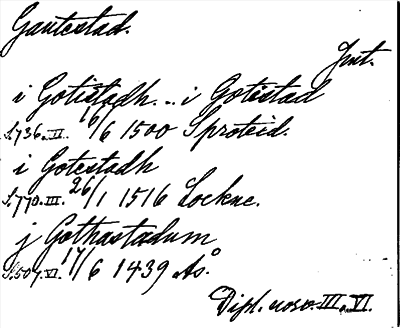 Gautestad.
Jmt.
i Gotistadh. .. i Gotistad
S.736.III. 16/6 1500 Sproteid.
i Gotestadh
S.770.III. 26/1 1516 Lockne.
j Gothastadum
S.507.VI. 17/6 1439 Ås.
Dipl. norv. III. VI.